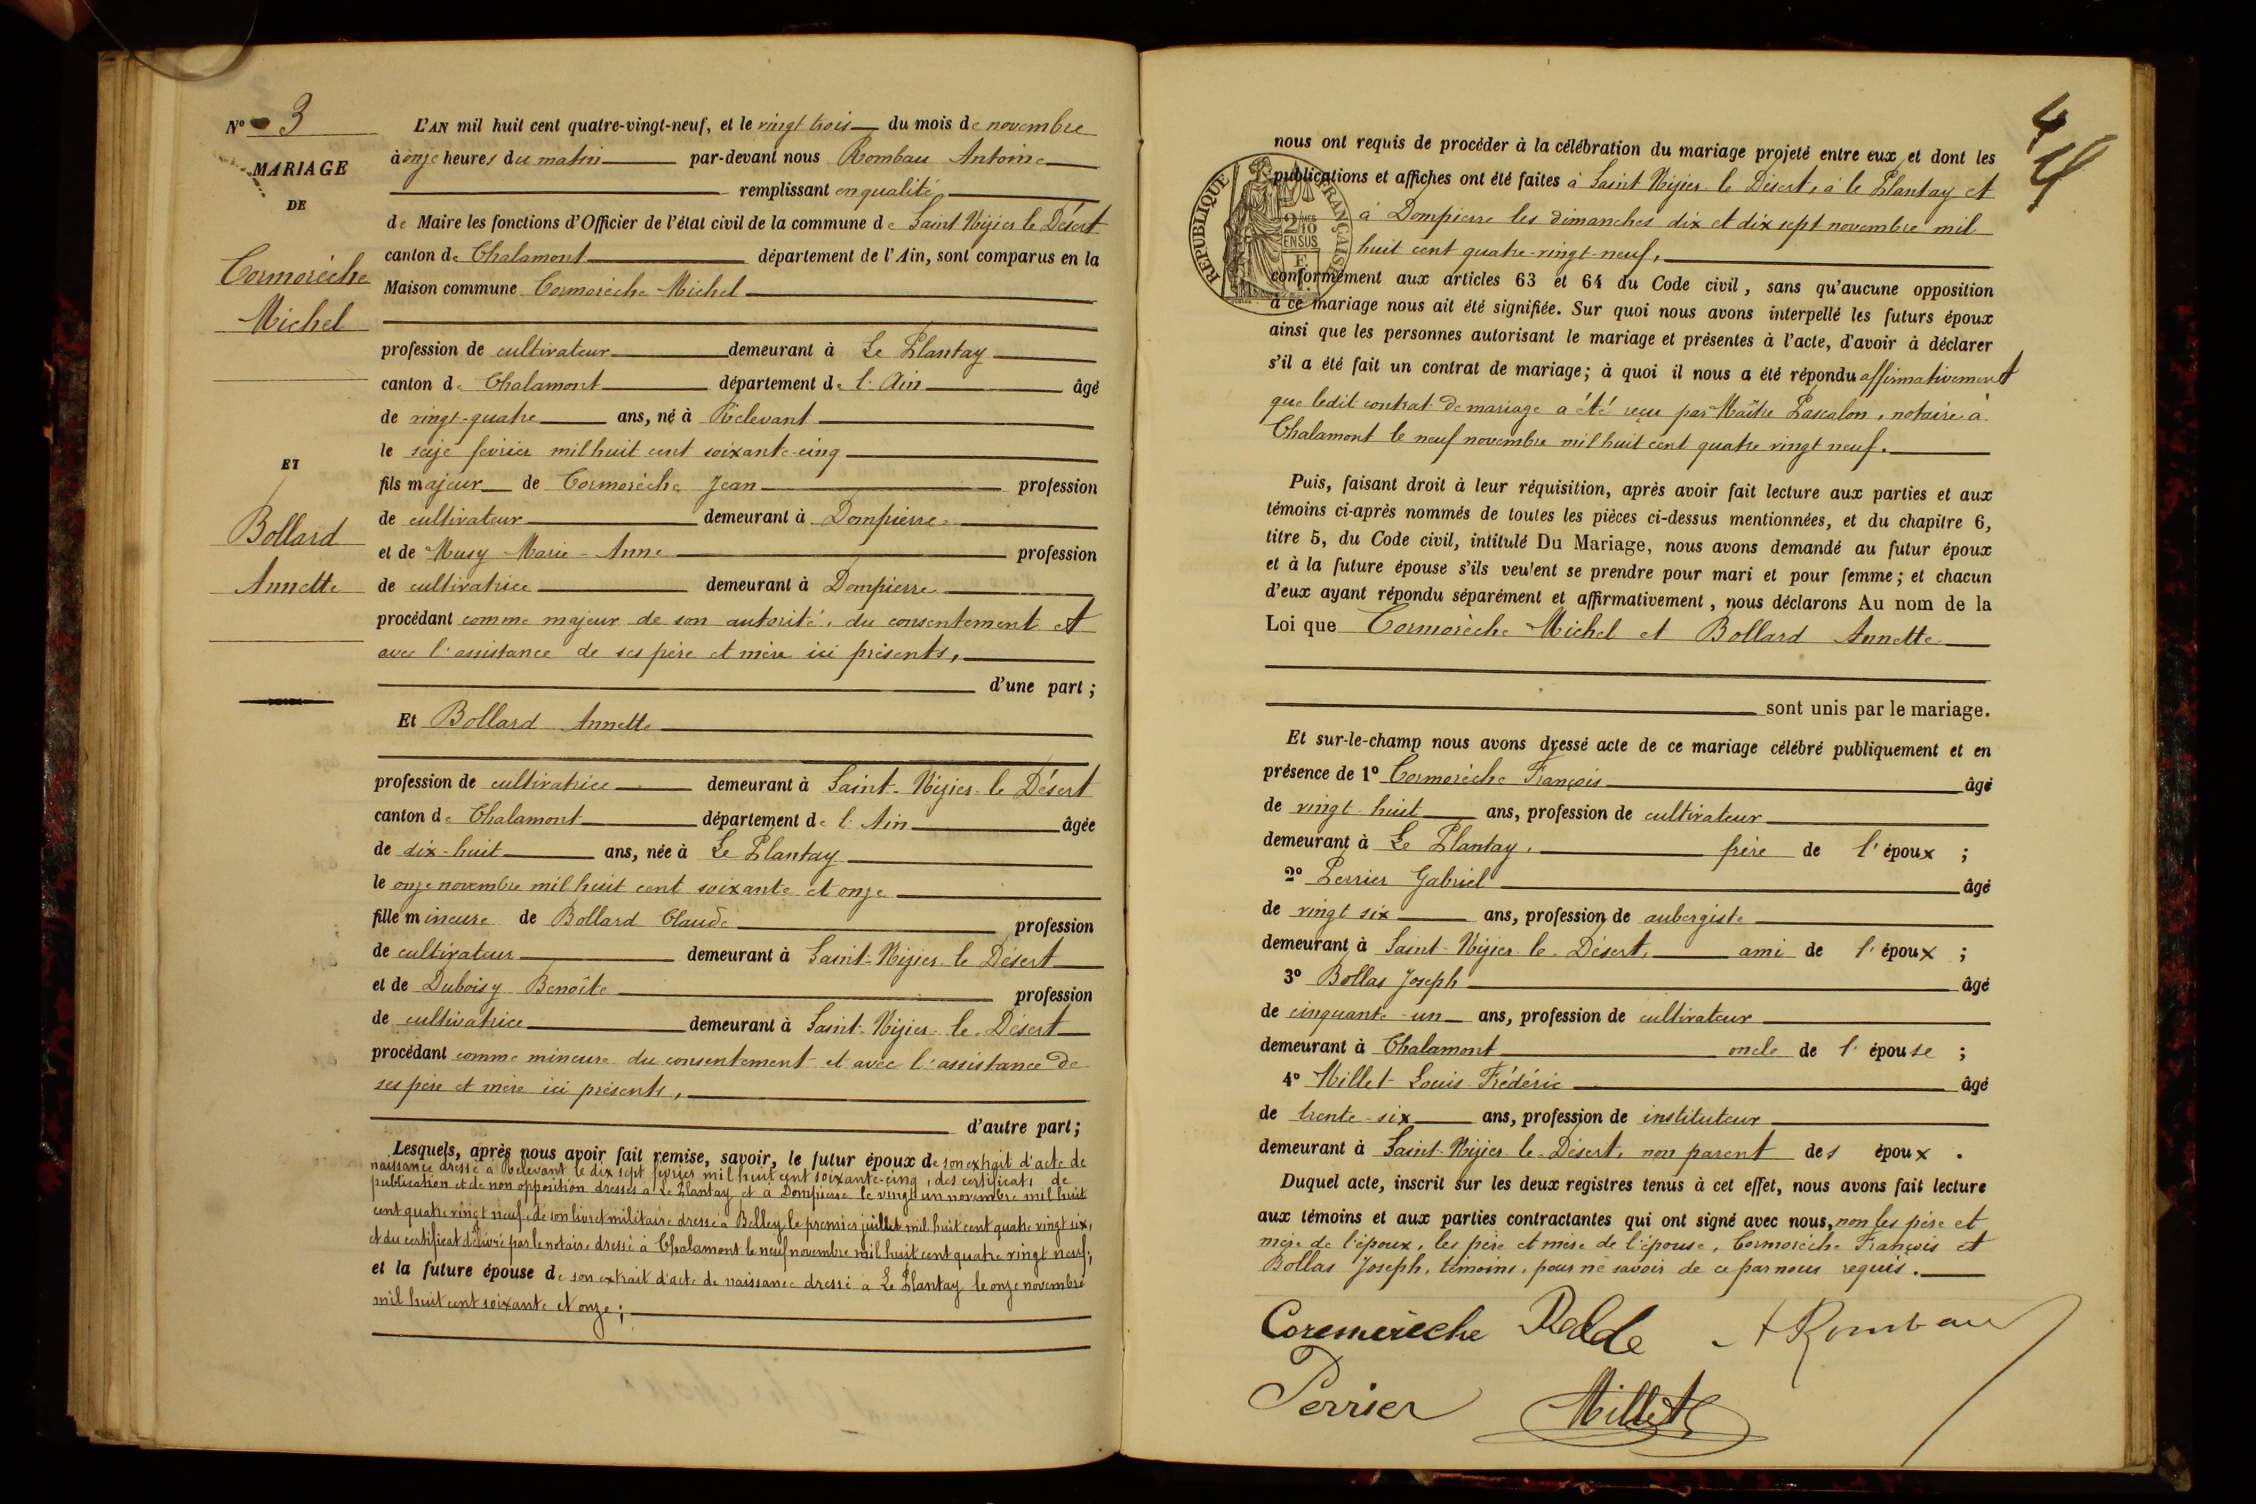 Nº 3
MARIAGE
DE
Cormorèche
Michel
ET
Bollard
Annette
L'AN mil huit cent quatre-vingt-neuf, et le vingt trois du mois de novembre
à onze heures du matin par-devant nous Rombau Antoine
remplissant en qualité
de Maire les fonctions d'Officier de l'état civil de la commune de Saint Nizier le Désert
canton de Chalamont département de l'Ain, sont comparus en la
Maison commune Cormorèche Michel
profession de cultivateur demeurant à Le Plantay
canton de Chalamont département de l'Ain âgé
de vingt-quatre ans, né à Relevant
le seize février mil huit cent soixante-cinq
fils majeur de Cormorèche Jean profession
de cultivateur demeurant à Dompierre
et de Musy Marie-Anne profession
de cultivatrice demeurant à Dompierre
procédant comme majeur de son autorité, du consentement et
avec l'assistance de ses père et mère ici présents,
d'une part ;
Et Bollard Annette
profession de cultivatrice demeurant à Saint-Nizier-le Désert
canton de Chalamont département de l'Ain âgée
de dix-huit ans, née à Le Plantay
le onze novembre mil huit cent soixante et onze
fille mineure de Bollard Claude profession
de cultivateur demeurant à Saint-Nizier-le Désert
et de Duboisy Benoîte profession
de cultivatrice demeurant à Saint-Nizier-le-Désert
procédant comme mineure du consentement et avec l'assistance de
ses père et mère ici présents,
d'autre part ;
Lesquels, après nous avoir fait remise, savoir, le futur époux de son extrait d'acte de
naissance dressé à Relevant le dix sept février mil huit cent soixante-cinq, des certificats de
publication et de non opposition dressés à Le Plantay et à Dompierre le vingt un novembre mil huit
cent quatre vingt neuf, de son livret militaire dressé à Belley le premier juillet mil huit cent quatre vingt six,
et du certificat délivré par le notaire dressé à Chalamont le neuf novembre mil huit cent quatre vingt neuf;
et la future épouse de son extrait d'acte de naissance dressé à Le Plantay le onze novembre
mil huit cent soixante et onze ;
4
nous ont requis de procéder à la célébration du mariage projeté entre eux et dont les
publications et affiches ont été faites à Saint Nizier-le Désert, à le Plantay et
à Dompierre les dimanches dix et dix sept novembre mil
huit cent quatre-vingt-neuf,
RÉPUBLIQUE FRANÇAISE
2/10 EN SUS
conformément aux articles 63 et 64 du Code civil, sans qu'aucune opposition
à ce mariage nous ait été signifiée. Sur quoi nous avons interpellé les futurs époux
ainsi que les personnes autorisant le mariage et présentes à l'acte, d'avoir à déclarer
s'il a été fait un contrat de mariage ; à quoi il nous a été répondu affirmativement
que ledit contrat de mariage a été reçu par Maître Pascalon, notaire à
Chalamont le neuf novembre mil huit cent quatre vingt neuf.
Puis, faisant droit à leur réquisition, après avoir fait lecture aux parties et aux
témoins ci-après nommés de toutes les pièces ci-dessus mentionnées, et du chapitre 6,
titre 5, du Code civil, intitulé Du Mariage, nous avons demandé au futur époux
et à la future épouse s'ils veulent se prendre pour mari et pour femme ; et chacun
d'eux ayant répondu séparément et affirmativement, nous déclarons Au nom de la
Loi que Cormorèche Michel et Bollard Annette
sont unis par le mariage.
Et sur-le-champ nous avons dressé acte de ce mariage célébré publiquement et en
présence de 1º Cormorèche François âgé
de vingt-huit ans, profession de cultivateur
demeurant à Le Plantay, frère de l'époux ;
2º Perrier Gabriel âgé
de vingt six ans, profession de aubergiste
demeurant à Saint-Nizier-le-Désert, ami de l'époux ;
3º Bollas Joseph âgé
de cinquante-un ans, profession de cultivateur
demeurant à Chalamont oncle de l'épouse ;
4º Millet Louis-Frédéric âgé
de trente-six ans, profession de instituteur
demeurant à Saint-Nizier-le-Désert, non parent des époux.
Duquel acte, inscrit sur les deux registres tenus à cet effet, nous avons fait lecture
aux témoins et aux parties contractantes qui ont signé avec nous, non les père et
mère de l'époux, les père et mère de l'épouse, Cormorèche François et
Bollas Joseph, témoins, pour ne savoir de ce par nous requis.
Coremèreche A Rombau
Perrier Millet